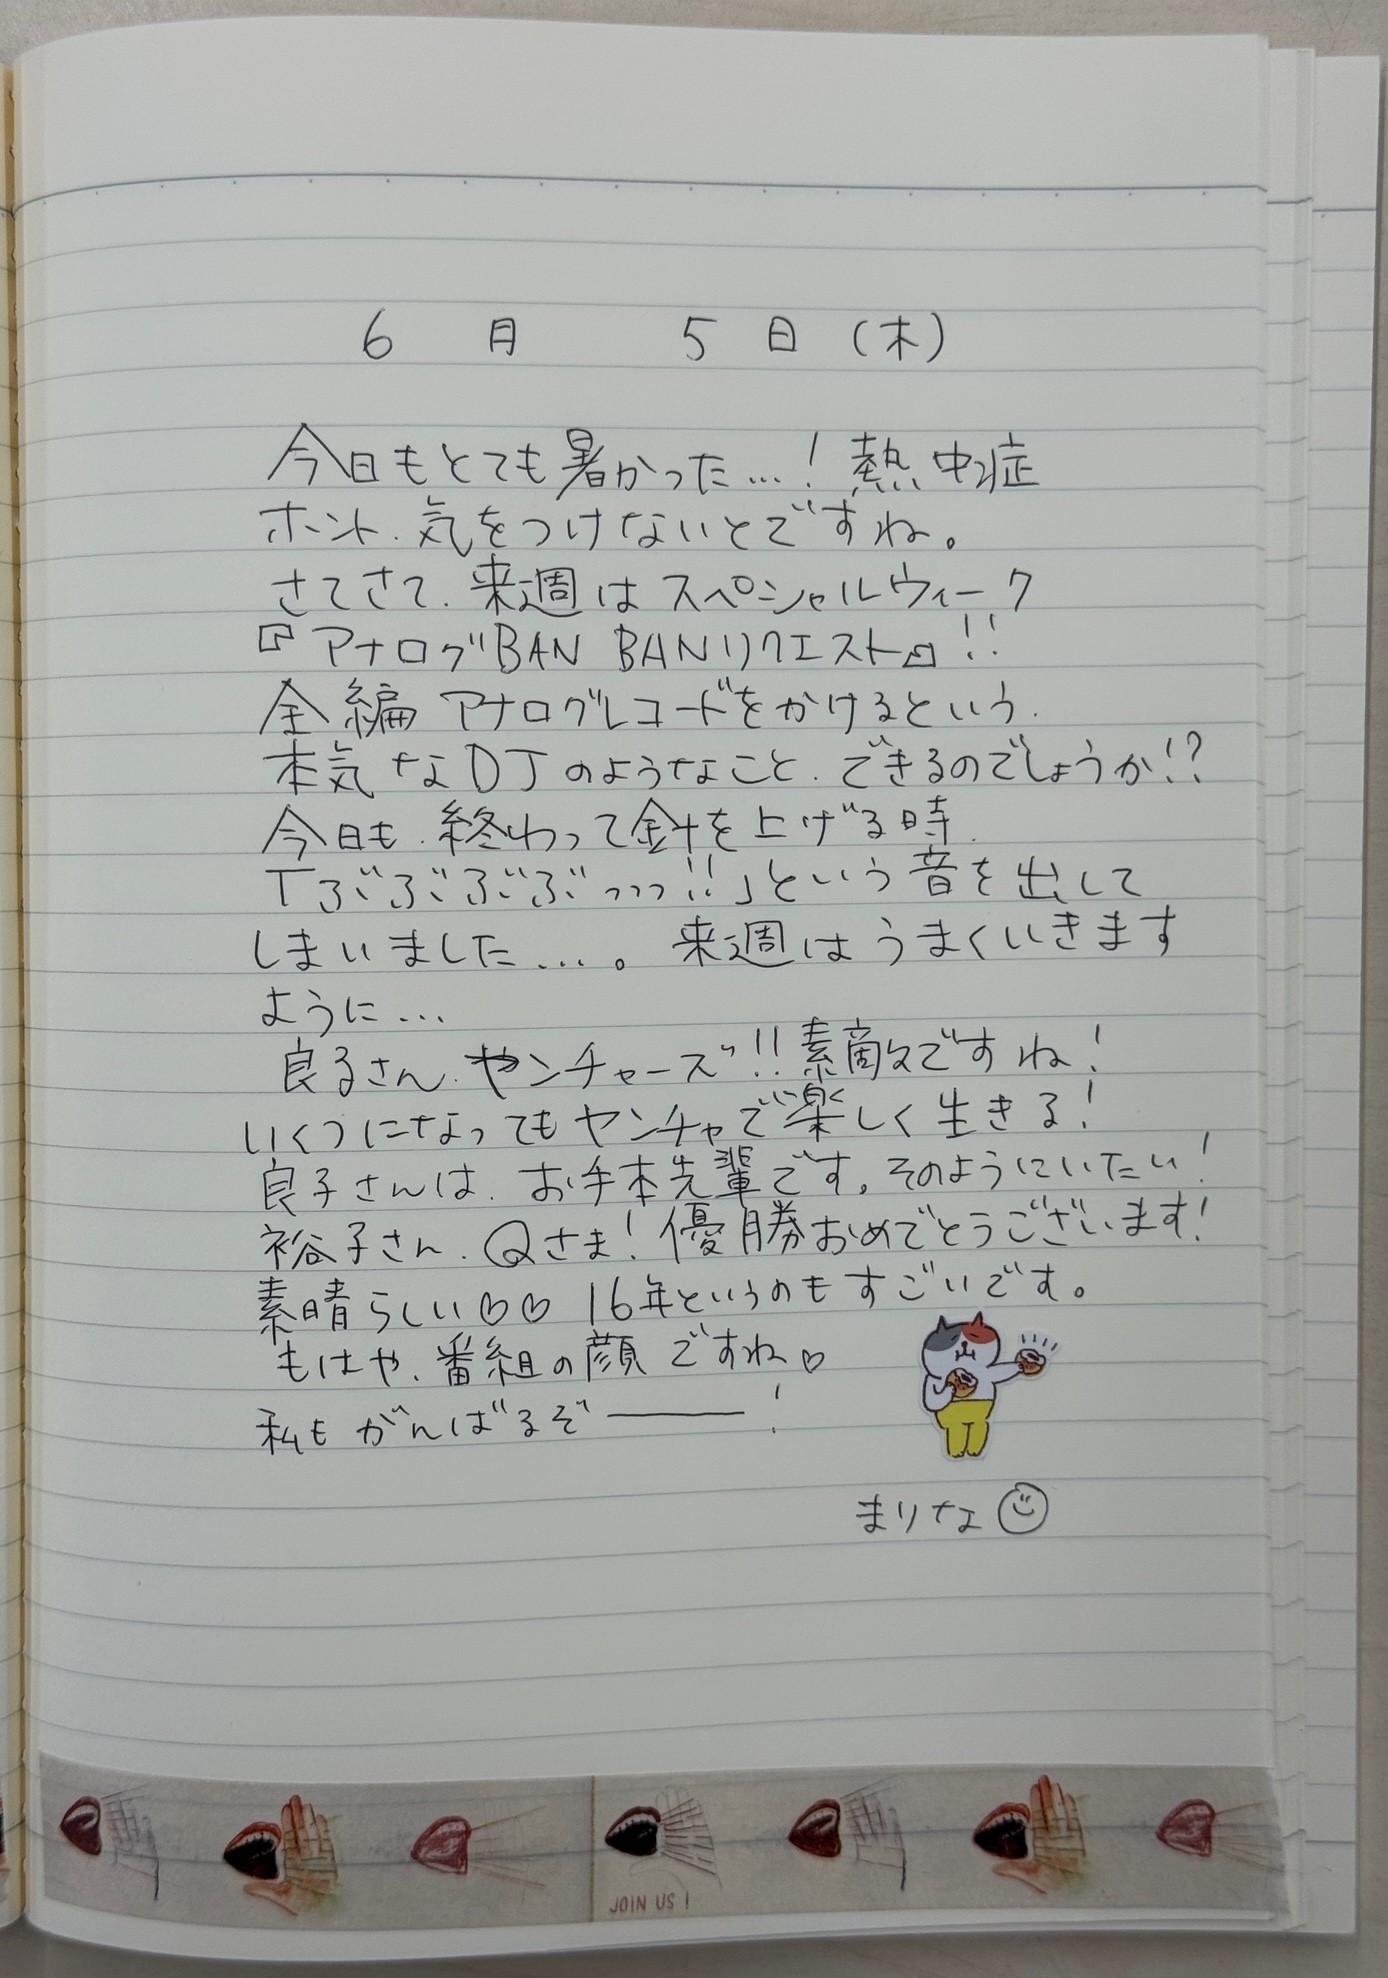 6月 5日(木)
今日もとても暑かった…!熱中症
ホント、気をつけないとですね。
さてさて、来週はスペシャルウィーク
『アナログBAN BANリクエスト』!!
全編アナログレコードをかけるという、
本気なDJのようなこと、できるのでしょうか!?
今日も、終わって針を上げる時、
「ぶぶぶぶっっっ!!」という音を出して
しまいました…。来週はうまくいきます
ように…
良子さん、ヤンチャーズ!!素敵ですね!
いくつになってもヤンチャで楽しく生きる!
良子さんは、お手本先輩です。そのようにいたい!
裕子さん、Qさま!優勝おめでとうございます!
素晴らしい♡♡ 16年というのもすごいです。
もはや、番組の顔ですね♡
私もがんばるぞ――!
まりな
JOIN US!